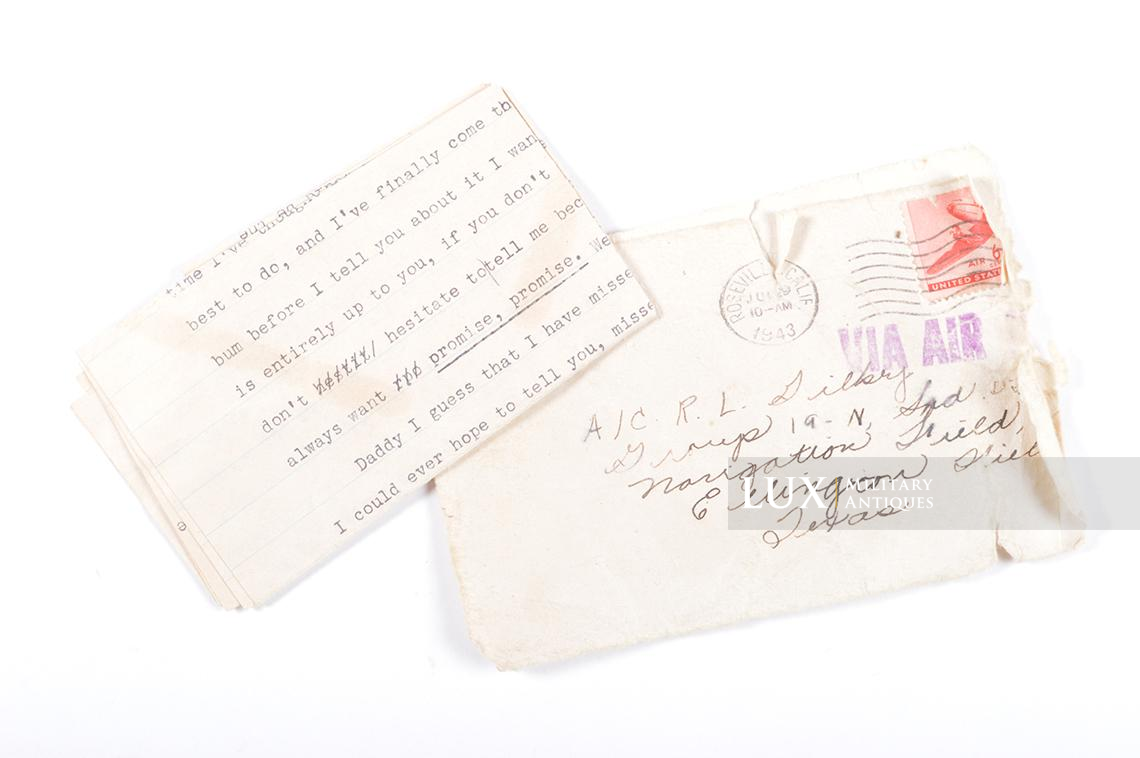 time I've
best to do, and I've finally come th
bum before I tell you about it I wan
is entirely up to you, if you don't
don't hesitate to tell me bec
always want promise, promise. We
Daddy I guess that I have misse
I could ever hope to tell you, misse
e
ROSEVILLE CALIF
10-AM
1943
AIR
6¢
UNITED STAT
VIA AIR
A/C. R. L. Silkey
Group 19-N,
Navigation Field
Ellington Fiel
Texas
LUX MILITARY
ANTIQUES